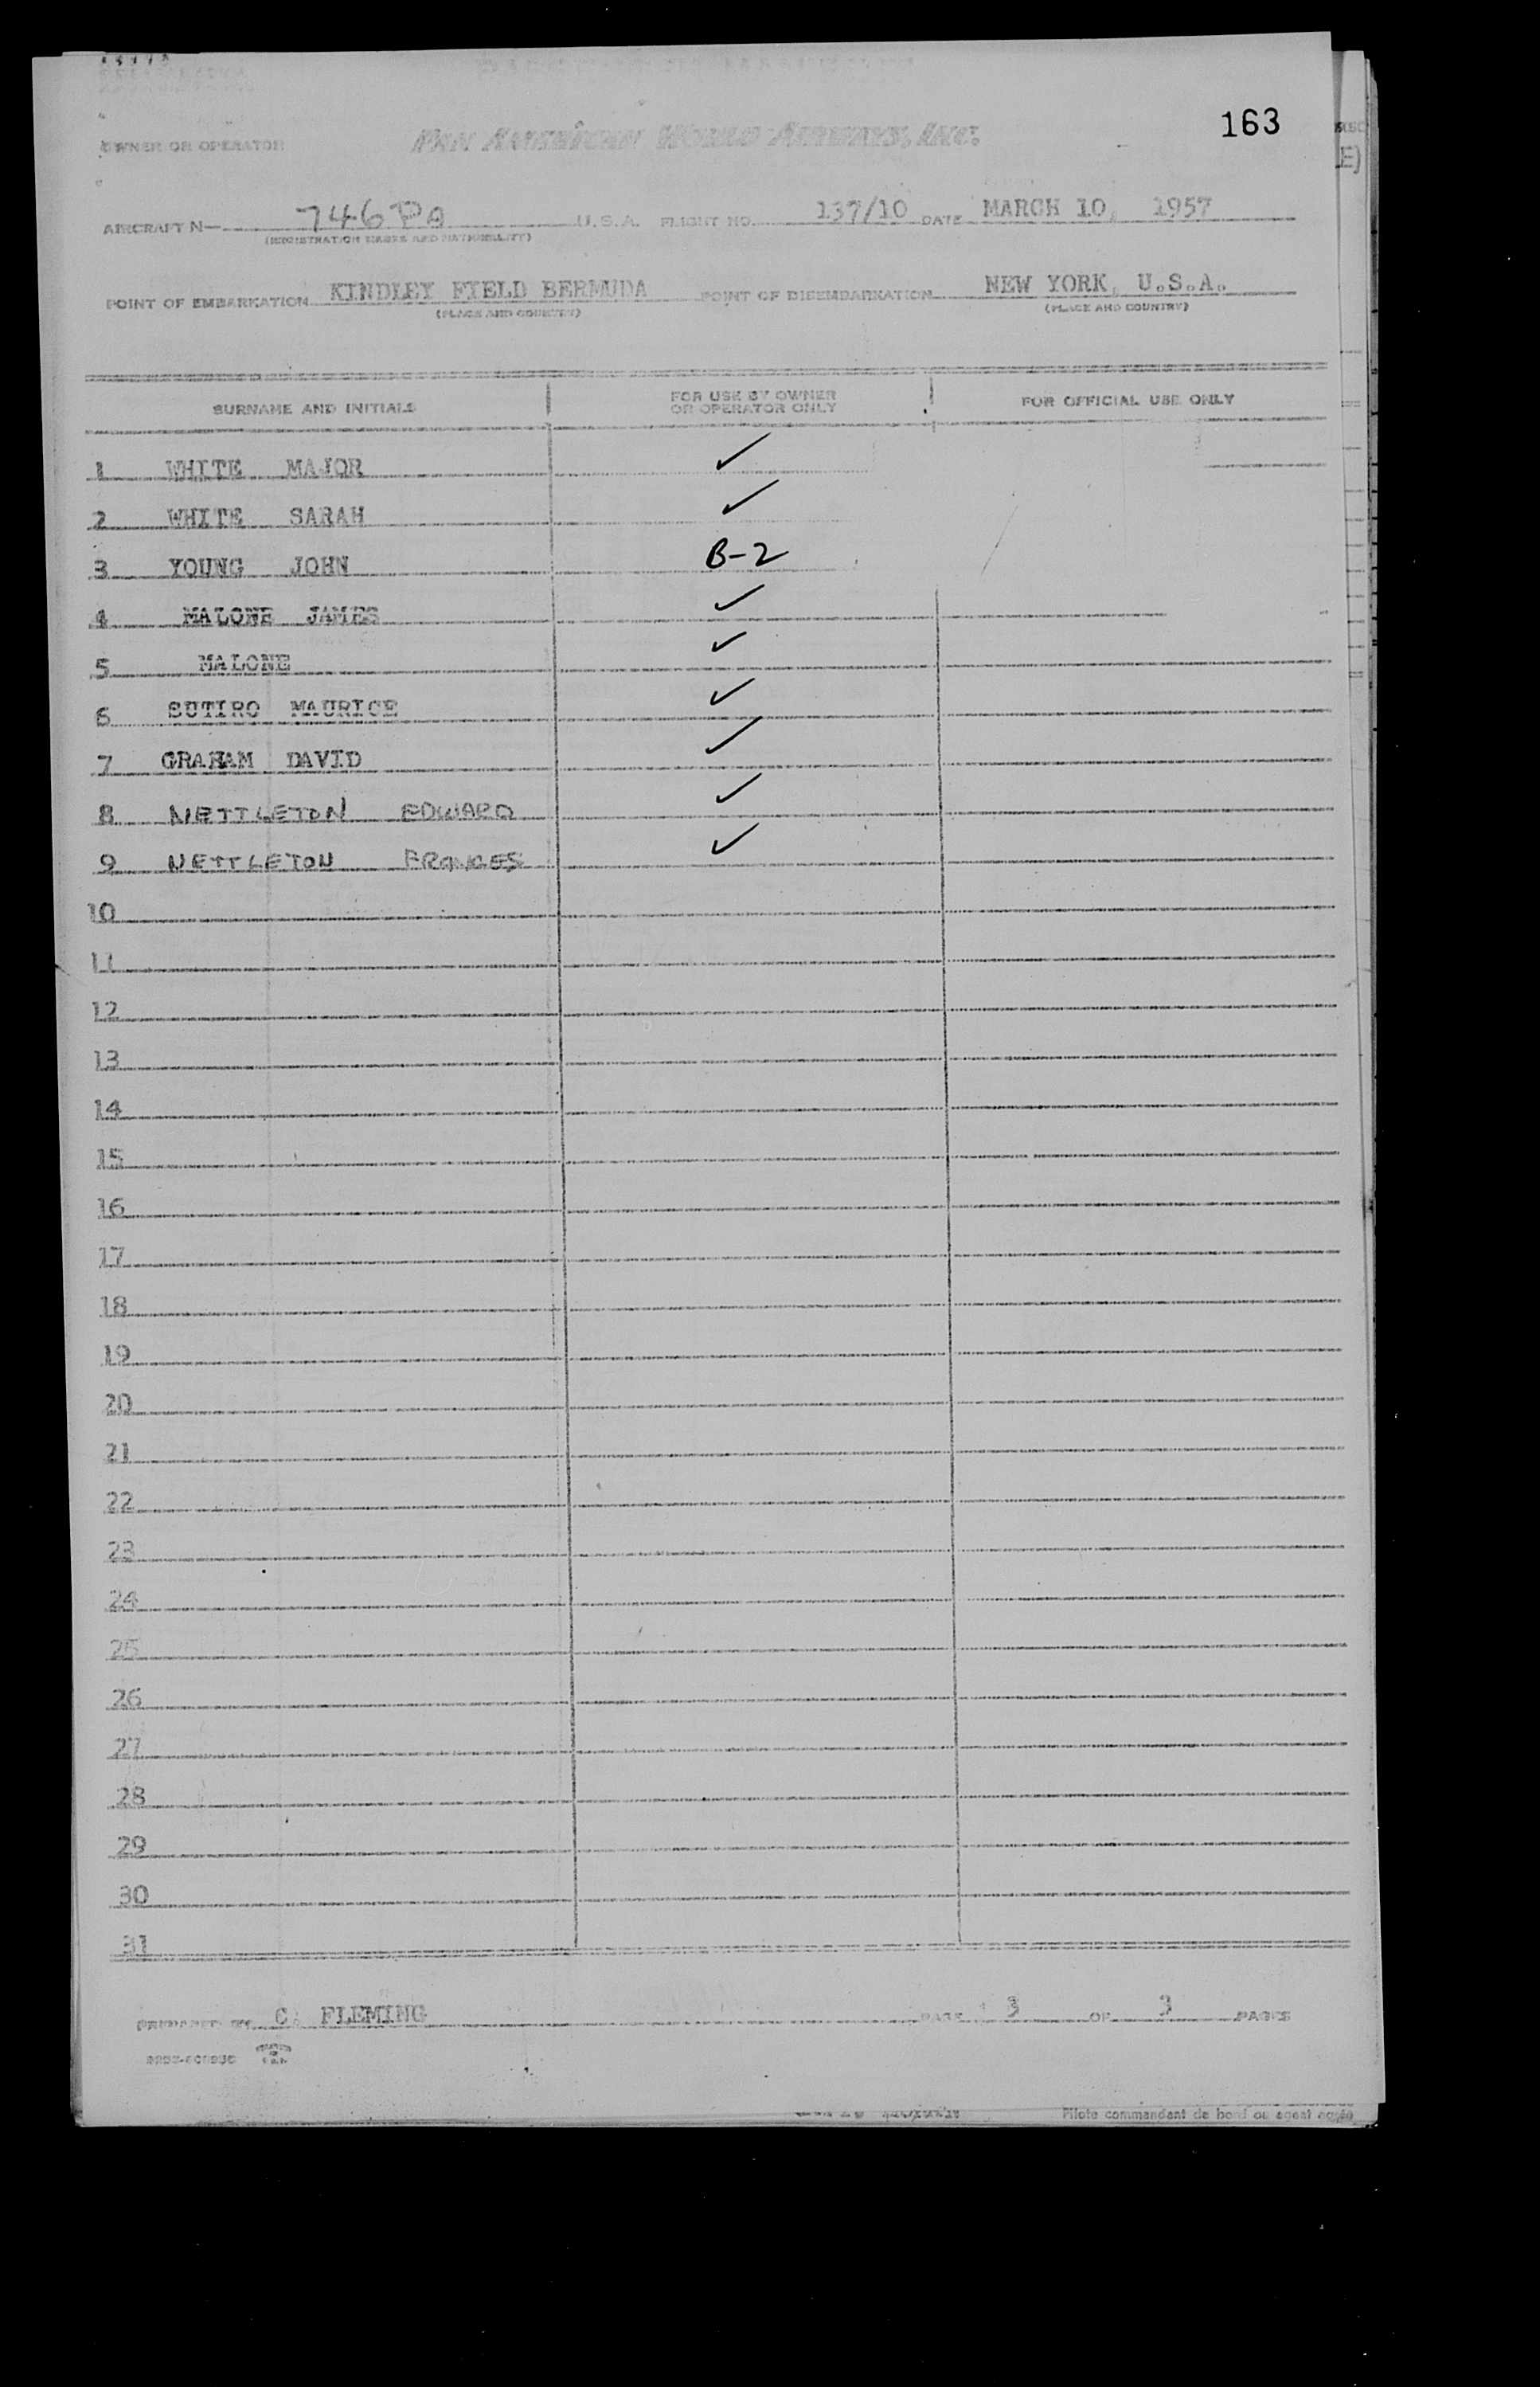 163
OWNER OR OPERATOR PAN AMERICAN WORLD AIRWAYS, INC.
E)
AIRCRAFT N— 746 PA U.S.A. FLIGHT NO. 137/10 DATE MARCH 10, 1957
(REGISTRATION MARKS AND NATIONALITY)
POINT OF EMBARKATION KINDLEY FIELD BERMUDA POINT OF DISEMBARKATION NEW YORK, U.S.A.
(PLACE AND COUNTRY) (PLACE AND COUNTRY)
SURNAME AND INITIALS FOR USE BY OWNER OR OPERATOR ONLY FOR OFFICIAL USE ONLY
1 WHITE MAJOR ✓
2 WHITE SARAH ✓
3 YOUNG JOHN B-2
4 MALONE JAMES ✓
5 MALONE ✓
6 SUTIRO MAURICE ✓
7 GRAHAM DAVID ✓
8 NETTLETON EDWARD ✓
9 NETTLETON FRANCES ✓
10
11
12
13
14
15
16
17
18
19
20
21
22
23
24
25
26
27
28
29
30
31
PREPARED BY C. FLEMING PAGE 3 OF 3 PAGES
Pilote commandant de bord ou agent agréé